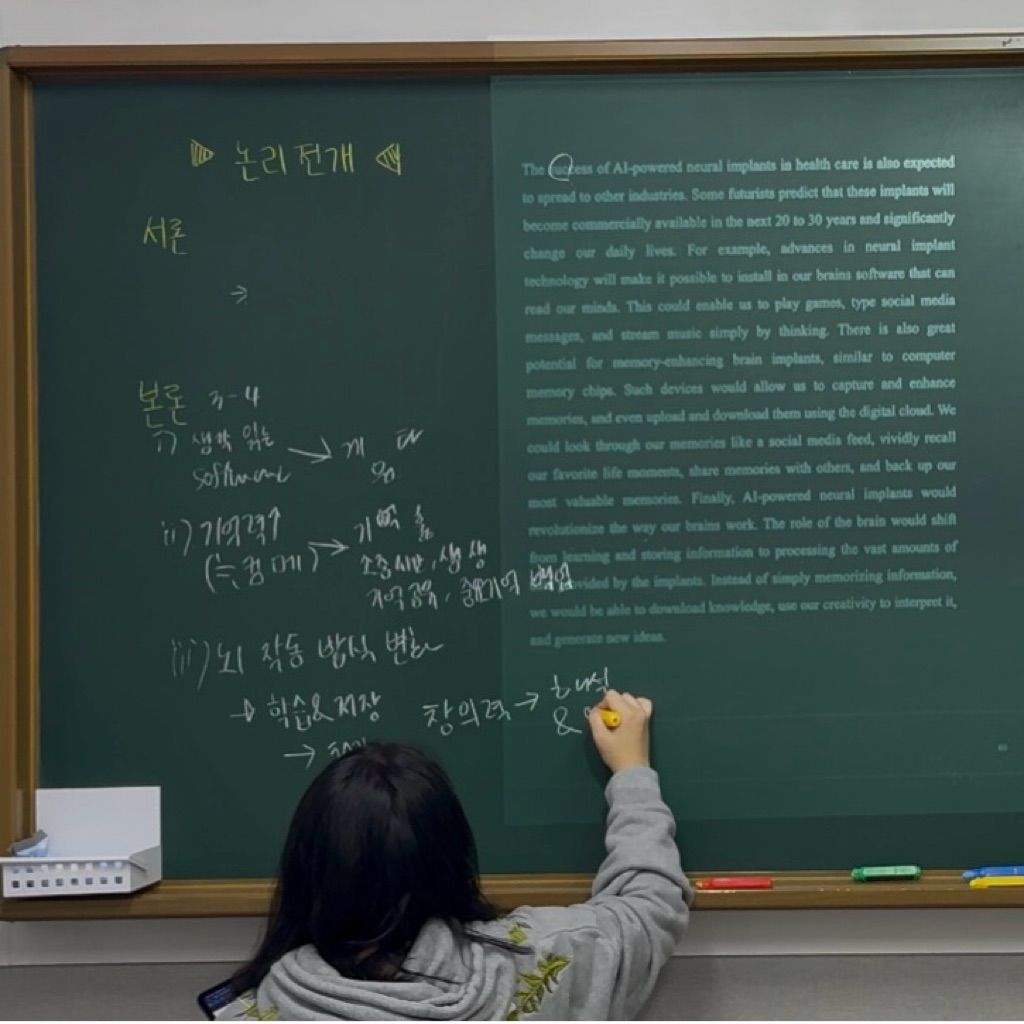 논리전개
서론
→
본론 3-4
i) 생각 읽는 → 게
software
ii) 기억력↑ → 기억
(≒컴 메) 소중시간, 생생
기억공유, 중요기억 백업
iii) 뇌 작동 방식 변화
→ 학습&저장 창의력 →
→ &
The success of AI-powered neural implants in health care is also expected
to spread to other industries. Some futurists predict that these implants will
become commercially available in the next 20 to 30 years and significantly
change our daily lives. For example, advances in neural implant
technology will make it possible to install in our brains software that can
read our minds. This could enable us to play games, type social media
messages, and stream music simply by thinking. There is also great
potential for memory-enhancing brain implants, similar to computer
memory chips. Such devices would allow us to capture and enhance
memories, and even upload and download them using the digital cloud. We
could look through our memories like a social media feed, vividly recall
our favorite life moments, share memories with others, and back up our
most valuable memories. Finally, AI-powered neural implants would
revolutionize the way our brains work. The role of the brain would shift
from learning and storing information to processing the vast amounts of
provided by the implants. Instead of simply memorizing information,
we would be able to download knowledge, use our creativity to interpret it,
and generate new ideas.